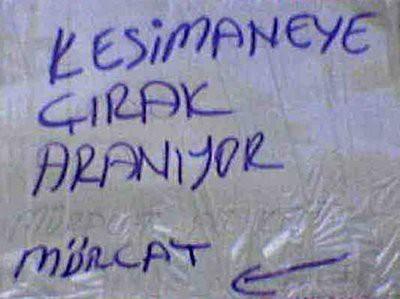 KESİMANEYE
ÇIRAK
ARANIYOR
MÜRCAT